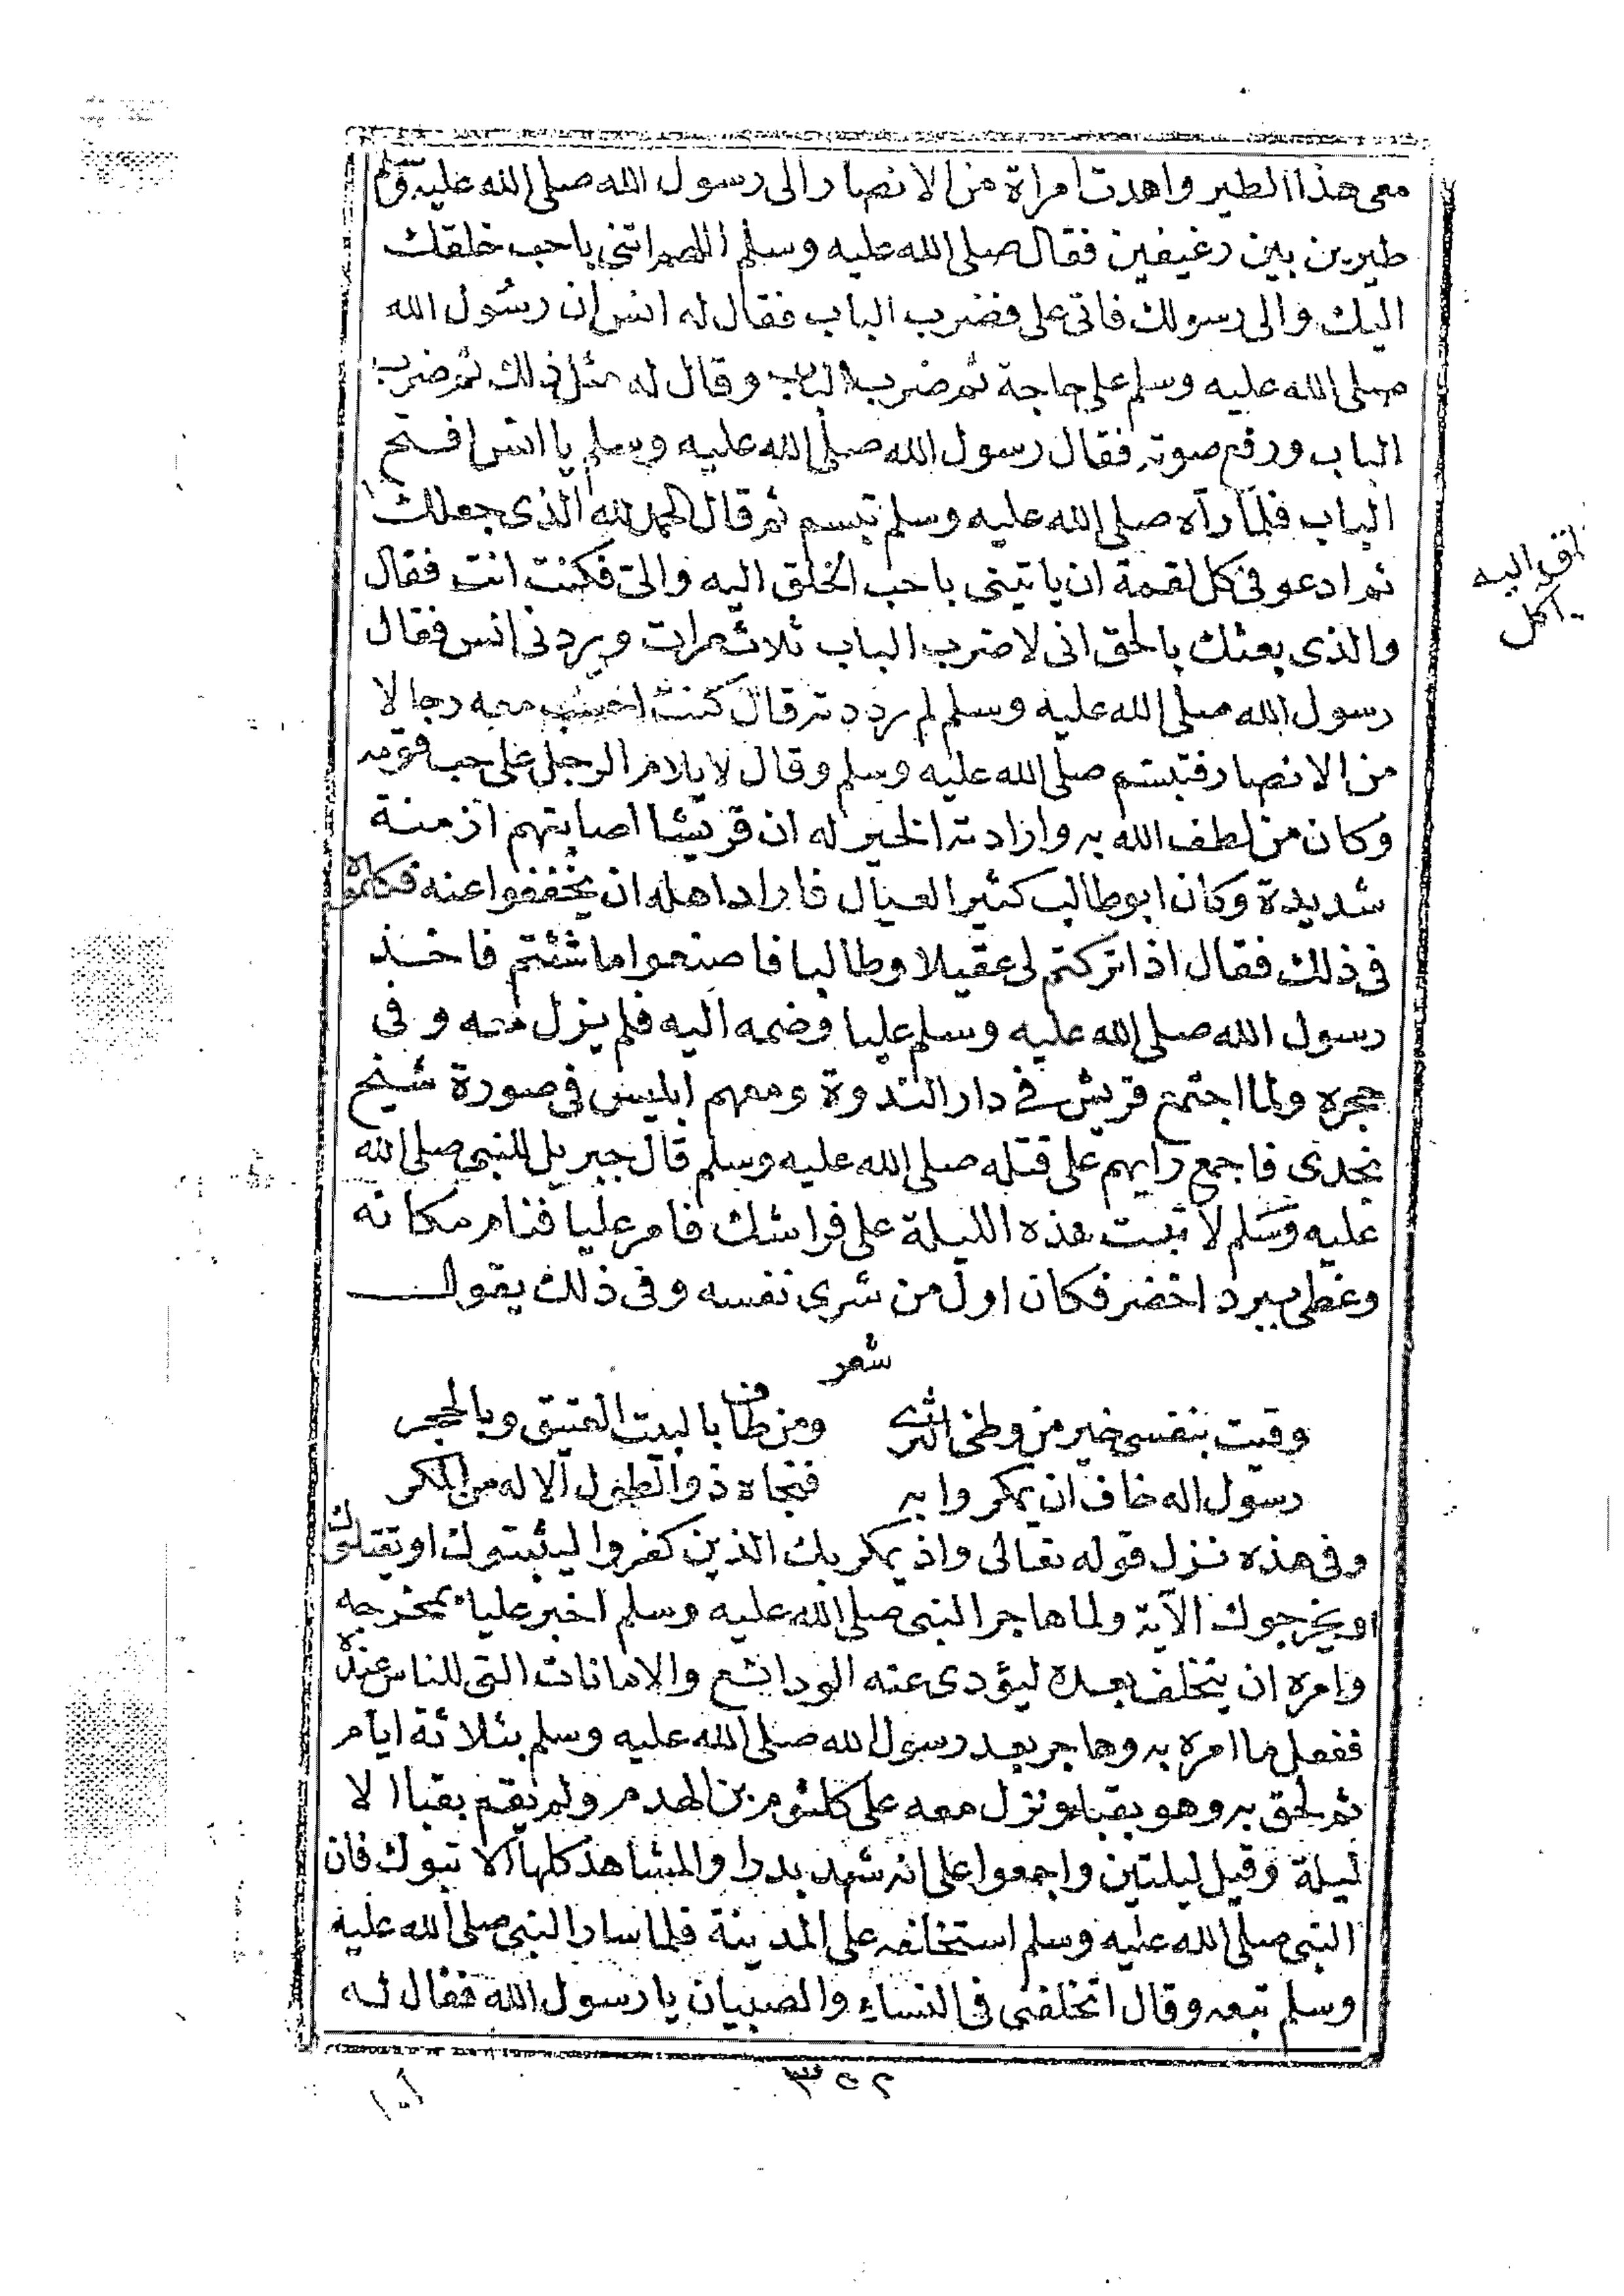 معى هذا الطير واهدت امراة من الانصار الى رسول الله صلى الله عليه وسلم
طيرين بين رغيفين فقال صلى الله عليه وسلم اللهم ائتنى باحب خلقك
اليك والى رسولك فاتى على فضرب الباب فقال له انس ان رسول الله
صلى الله عليه وسلم على حاجة ثم ضرب الباب وقال له مثل ذلك ثم ضرب
الباب ورفع صوته فقال رسول الله صلى الله عليه وسلم يا انس افتح
الباب فلما رآه صلى الله عليه وسلم تبسم ثم قال الحمد لله الذى جعلك
ثم ادعو فى كل لقمة ان ياتينى باحب الخلق اليه والى فكنت انت فقال
والذى بعثك بالحق انى لاضرب الباب ثلاث مرات ويردنى انس فقال
رسول الله صلى الله عليه وسلم لم رددته قال كنت احب معه رجالا
من الانصار فتبسم صلى الله عليه وسلم وقال لا يلام الرجل على حب قومه
وكان من لطف الله به وارادته الخير له ان قريشا اصابتهم ازمنة
شديدة وكان ابو طالب كثير العيال فاراد اهله ان يخففوا عنه فكلموه
فى ذلك فقال اذا تركتم لى عقيلا وطالبا فاصنعوا ما شئتم فاخذ
رسول الله صلى الله عليه وسلم عليا وضمه اليه فلم يزل معه وفى
حجره ولما اجتمع قريش فى دار الندوة ومعهم ابليس فى صورة شيخ
نجدى فاجمع رايهم على قتله صلى الله عليه وسلم قال جبريل للنبى صلى الله
عليه وسلم لا تبت هذه الليلة على فراشك فامر عليا فنام مكانه
وغطى ببرد اخضر فكان اول من شرى نفسه وفى ذلك يقول
شعر
وقيت بنفسى خير من وطئ الثرى ومن طاف بالبيت العتيق وبالحجر
رسول اله خاف ان يمكروا به فنجاه ذو الطول الاله من المكر
وفى هذه نزل قوله تعالى واذ يمكر بك الذين كفروا ليثبتوك او يقتلوك
او يخرجوك الآية ولما هاجر النبى صلى الله عليه وسلم اخبر عليا بمخرجه
وامره ان يتخلف بعده ليؤدى عنه الودائع والامانات التى للناس عنده
ففعل ما امره به وهاجر بعد رسول الله صلى الله عليه وسلم بثلاثة ايام
ثم لحق به وهو بقباء ونزل معه على كلثوم بن الهدم ولم يقم بقبا الا
ليلة وقيل ليلتين واجمعوا على انه شهد بدرا والمشاهد كلها الا تبوك فان
النبى صلى الله عليه وسلم استخلفه على المدينة فلما سار النبى صلى الله عليه
وسلم تبعه وقال اتخلفنى فى النساء والصبيان يا رسول الله فقال له